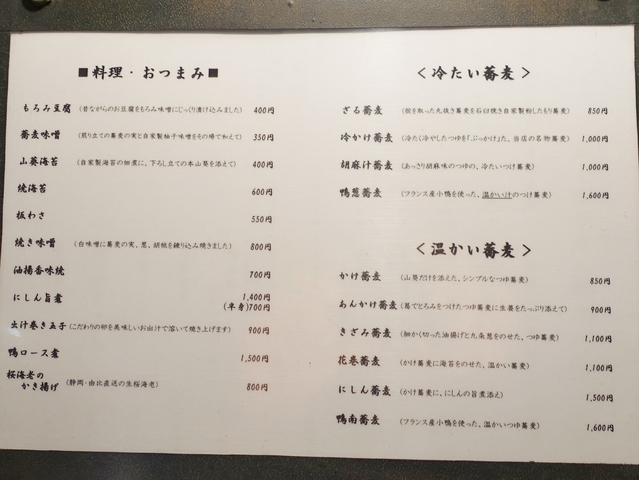 ■料理・おつまみ■
もろみ豆腐 (昔ながらのお豆腐をもろみ味噌にじっくり漬け込みました) 400円
蕎麦味噌 (煎り立ての蕎麦の実と自家製柚子味噌をその場で和えて) 350円
山葵海苔 (自家製海苔の佃煮に、下ろし立ての本山葵を添えて) 400円
焼海苔 600円
板わさ 550円
焼き味噌 (白味噌に蕎麦の実、葱、胡桃を練り込み焼きました) 800円
油揚香味焼 700円
にしん旨煮 1,400円
(半身)700円
出汁巻き玉子 (こだわりの卵を美味しいお出汁で溶いて焼き上げます) 900円
鴨ロース煮 1,500円
桜海老の
かき揚げ (静岡・由比直送の生桜海老) 800円
＜冷たい蕎麦＞
ざる蕎麦 (殻を取った丸抜き蕎麦を石臼挽き自家製粉したもり蕎麦) 850円
冷かけ蕎麦 (冷たく冷やしたつゆを「ぶっかけ」た、当店の名物蕎麦) 1,000円
胡麻汁蕎麦 (あっさり胡麻味のつゆの、冷たいつけ蕎麦) 1,000円
鴨葱蕎麦 (フランス産小鴨を使った、温かい汁のつけ蕎麦) 1,600円
＜温かい蕎麦＞
かけ蕎麦 (山葵だけを添えた、シンプルなつゆ蕎麦) 850円
あんかけ蕎麦 (葛でとろみをつけたつゆ蕎麦に生姜をたっぷり添えて) 900円
きざみ蕎麦 (細かく切った油揚げと九条葱をのせた、つゆ蕎麦) 1,100円
花巻蕎麦 (かけ蕎麦に海苔をのせた、温かい蕎麦) 1,100円
にしん蕎麦 (かけ蕎麦に、にしんの旨煮添え) 1,500円
鴨南蕎麦 (フランス産小鴨を使った、温かいつゆ蕎麦) 1,600円